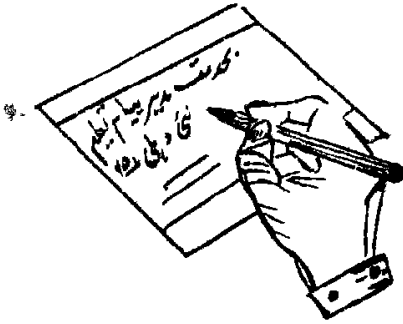 بخدمت مدیر پیام تعلیم
نئی دہلی ۲۵